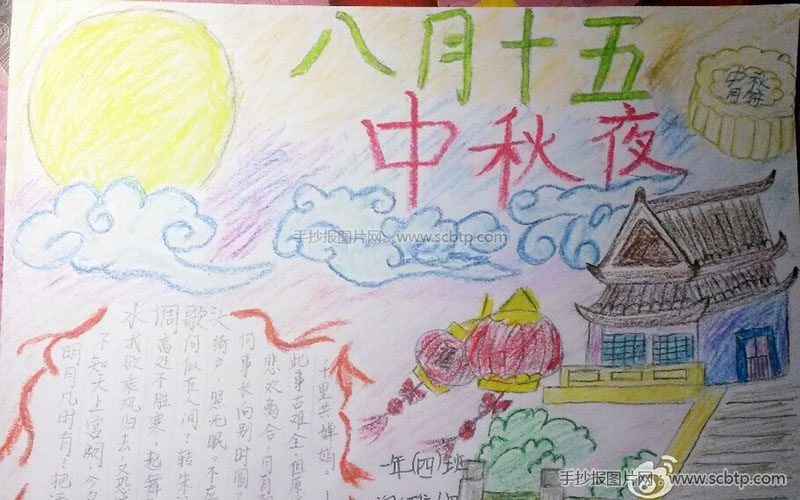 八月十五
中秋夜
中秋
月饼
手抄报图片网 www.scbtp.com
水调歌头
明月几时有？把
不知天上宫阙,今夕
我欲乘风归去,又恐
高处不胜寒。起舞
何似在人间？转朱
绮户,照无眠。不
何事长向别时圆
悲欢离合,月有
此事古难全。但愿
千里共婵娟。
一年(四)班
手抄报图片网 www.scbtp.com